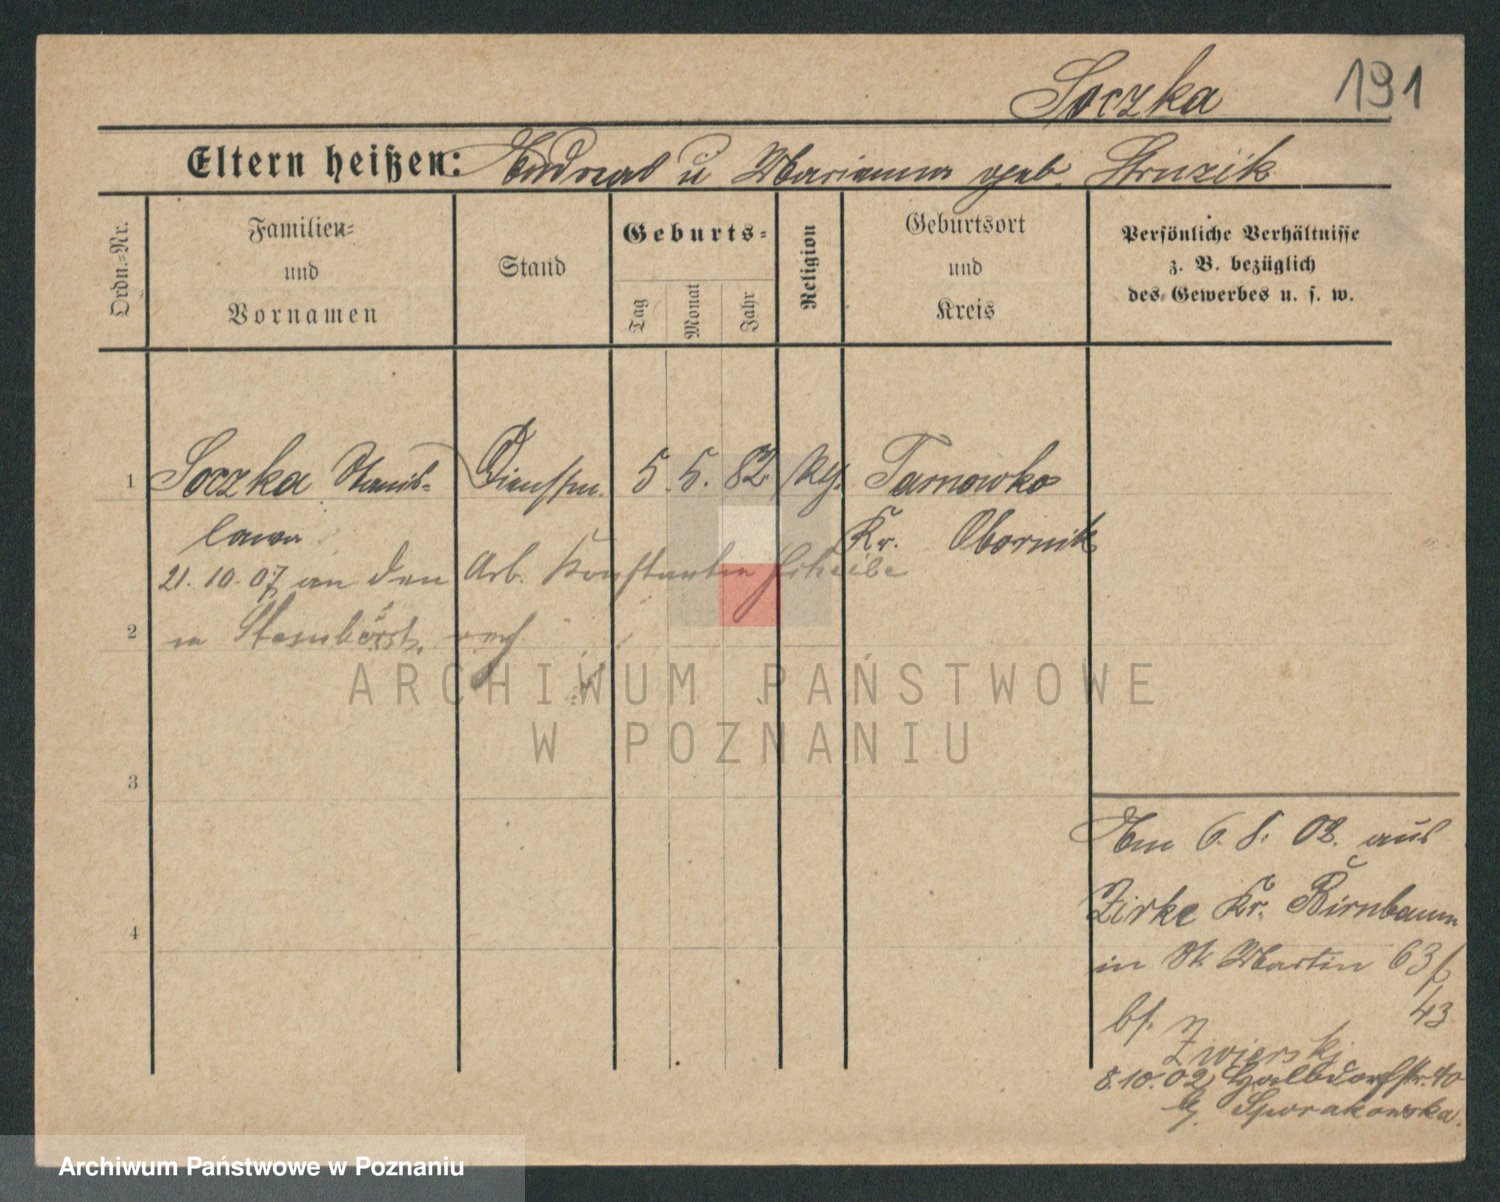 Soczka 191
Eltern heißen: Andreas u Marianna geb. Struzik
Ordn.-Nr.
Familien-
und
Vornamen
Stand
Geburts-
Tag
Monat
Jahr
Religion
Geburtsort
und
Kreis
Persönliche Verhältnisse
z. B. bezüglich
des Gewerbes u. s. w.
1 Soczka Stanis- Dienstm. 5. 5. 82. Tarnowko
lawa Kr. Obornik
21. 10. 07 an den Arb. Konstantin Scheibe
2 in
3
4
Am 6. 8. 02. aus
Zirke Kr. Birnbaum
in St. Martin 63
43
bf. Zwierski
8.10.02 Halbdorfstr. 40
b. Sporakowska.
ARCHIWUM PAŃSTWOWE
W POZNANIU
Archiwum Państwowe w Poznaniu